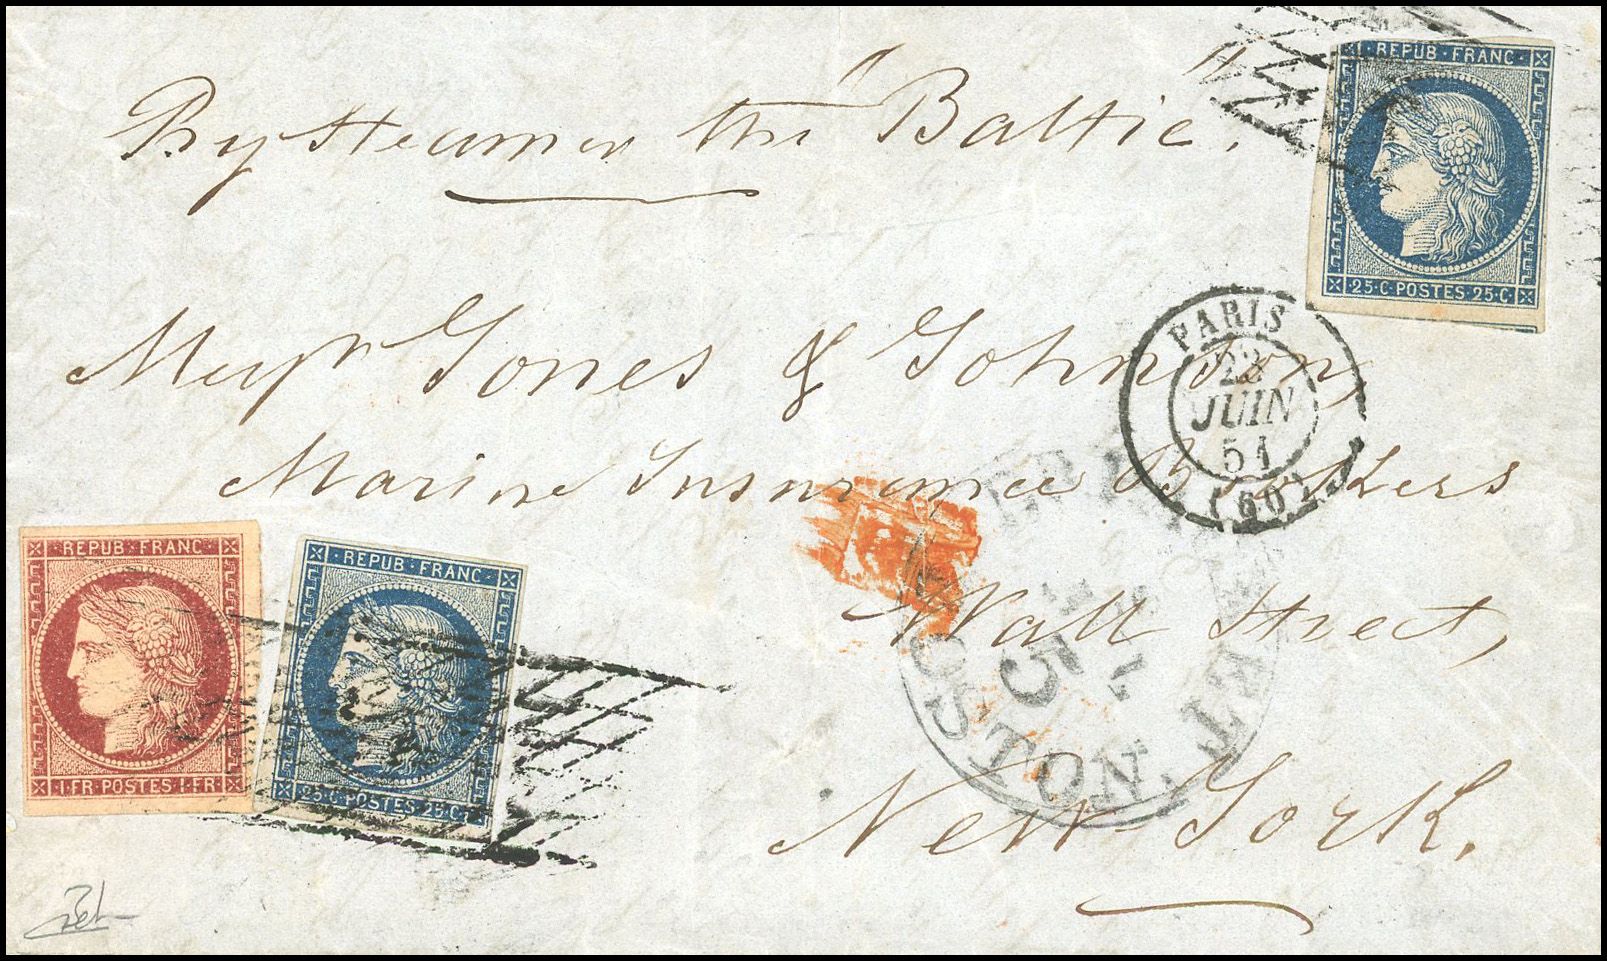 By steamer the "Baltic".
REPUB · FRANC
25 · C · POSTES · 25 · C
PARIS
22
JUIN
51
(60)
Messrs Jones & Johnson
Marine Insurance Brokers
Wall Street,
New-York.
REPUB · FRANC
1 · FR · POSTES · 1 · FR
REPUB · FRANC
25 · C · POSTES · 25 · C
BOSTON
5